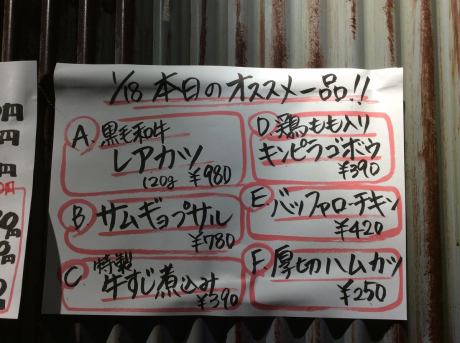 1/18 本日のオススメ一品!!
A. 黒毛和牛
レアカツ
120g ¥980
B サムギョプサル
¥780
C 特製
牛すじ煮込み
¥390
D. 鶏もも入り
キンピラゴボウ
¥390
E. バッファローチキン
¥420
F. 厚切ハムカツ
¥250
円
円
円
円